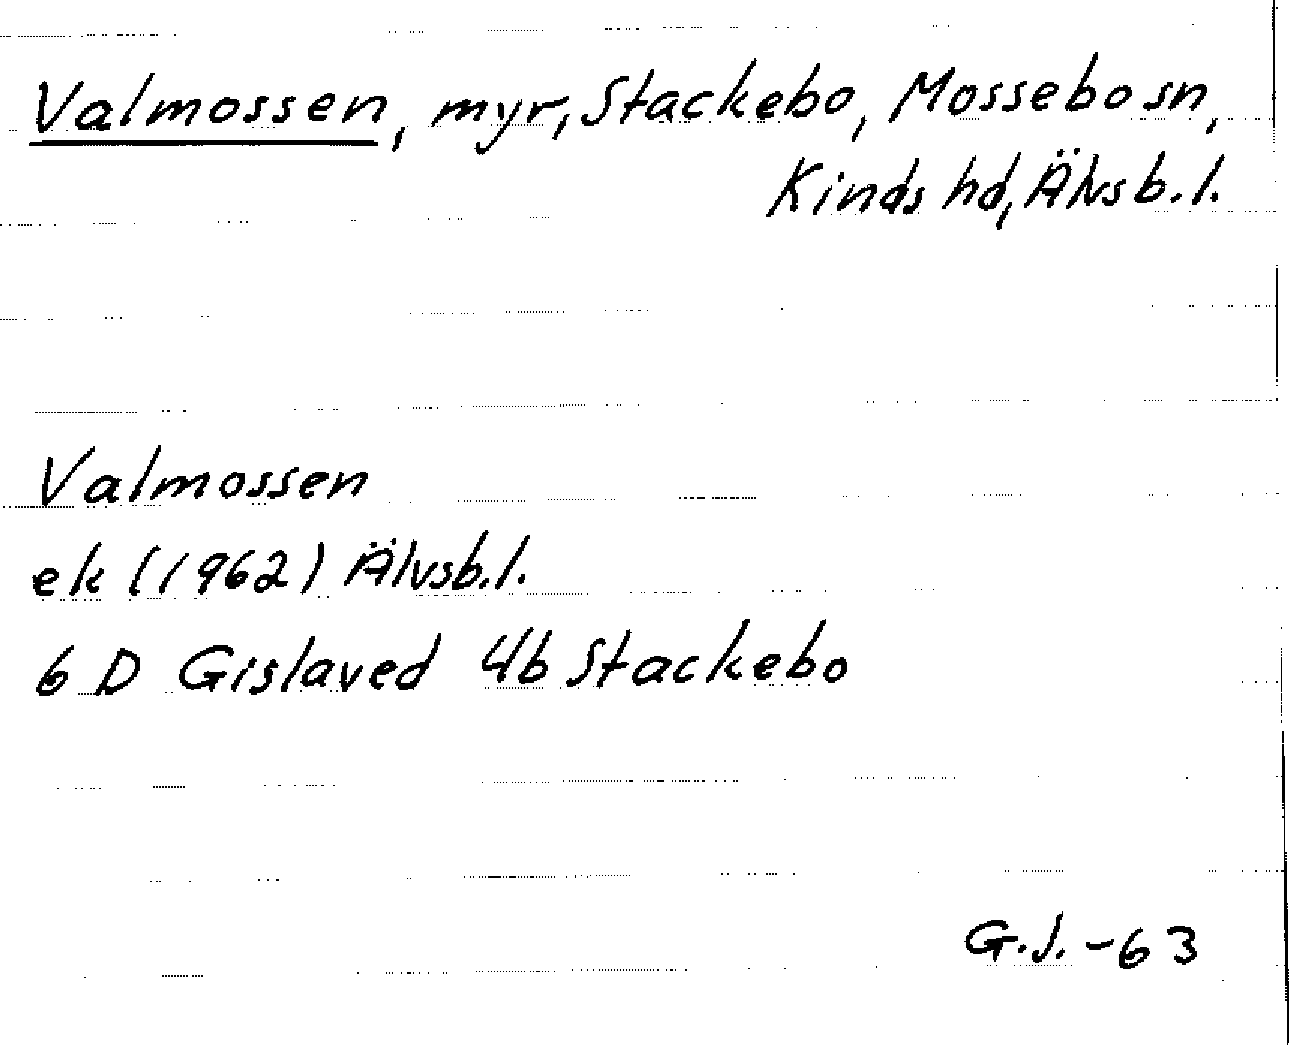 Valmossen, myr, Stackebo, Mossebo sn,
Kinds hd, Älvsb. l.
Valmossen
ek (1962) Älvsb. l.
6 D Gislaved 4b Stackebo
G.J. -63